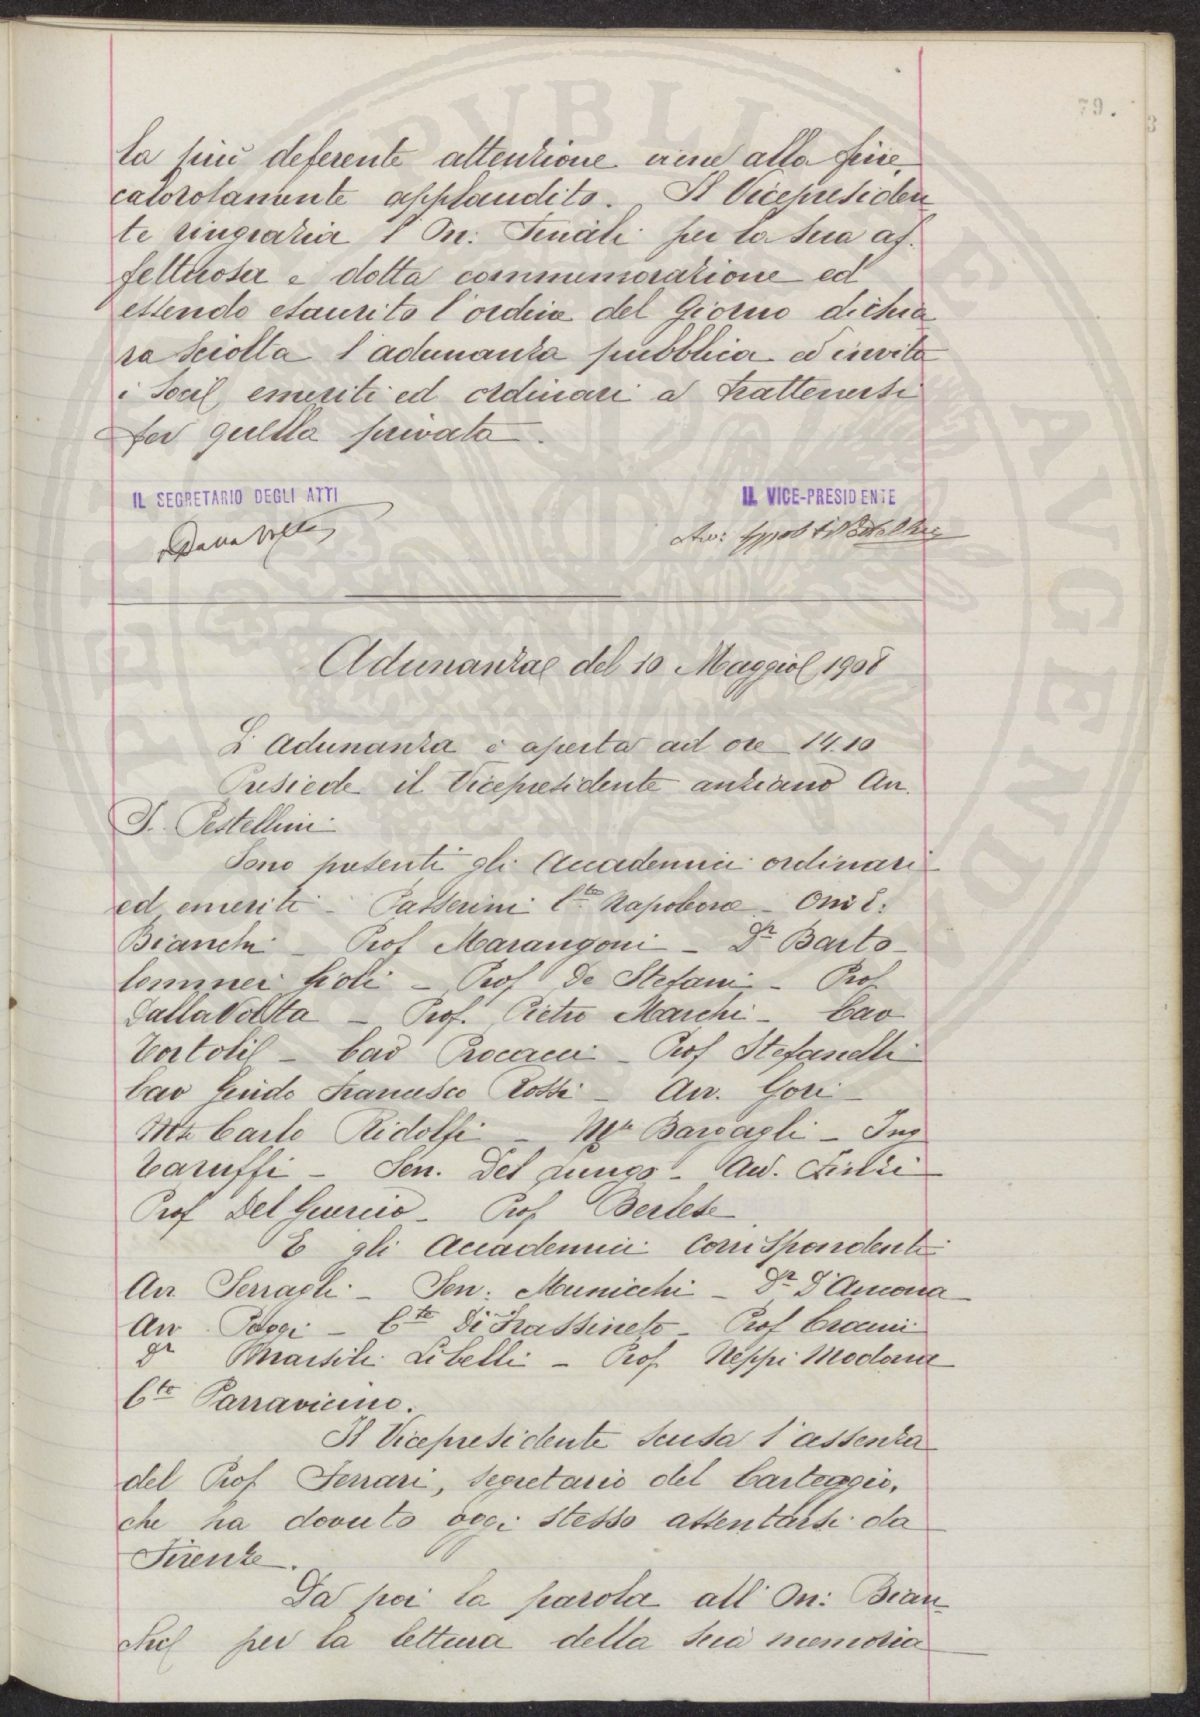 79.
la più deferente attenzione viene alla fine
calorosamente applaudito. Il Vicepresiden
te ringrazia l'On: Finali per la sua af-
fettuosa e dotta commemorazione ed
essendo esaurito l'ordine del Giorno dichia
ra sciolta l'adunanza pubblica ed invita
i Soci emeriti ed ordinari a trattenersi
per quella privata.
IL SEGRETARIO DEGLI ATTI
IL VICE-PRESIDENTE
Dalla Volta
Avv:
Adunanza del 10 Maggio 1908
L'Adunanza è aperta ad ore 14.10
Presiede il Vicepresidente anziano Avv.
I. Pestellini
Sono presenti gli Accademici ordinari
ed emeriti - Passerini Cte Napoleone - On: E:
Bianchi - Prof Marangoni - Dr Barto-
lommei Gioli - Prof De Stefani - Prof
Dalla Volta - Prof. Pietro Marchi - Cav
Tortoli - Cav Procacci - Prof Stefanelli
Cav Guido Francesco Rossi - Avv. Gori -
Mse Carlo Ridolfi - Mse Bargagli - Ing
Taruffi - Sen. Del Lungo - Avv.
Prof Del Guercio - Prof Berlese
E gli Accademici Corrispondenti
Avv Serragli - Sen: Municchi - Dr D'Ancona
Avv Poggi - Cte Di Frassineto - Prof
Dr Marsili Libelli - Prof Neppi Modona
Cte Parravicino.
Il Vicepresidente scusa l'assenza
del Prof Ferrari, segretario del Carteggio,
che ha dovuto oggi stesso assentarsi da
Firenze.
Dà poi la parola all'On: Bian-
chi per la lettura della sua memoria